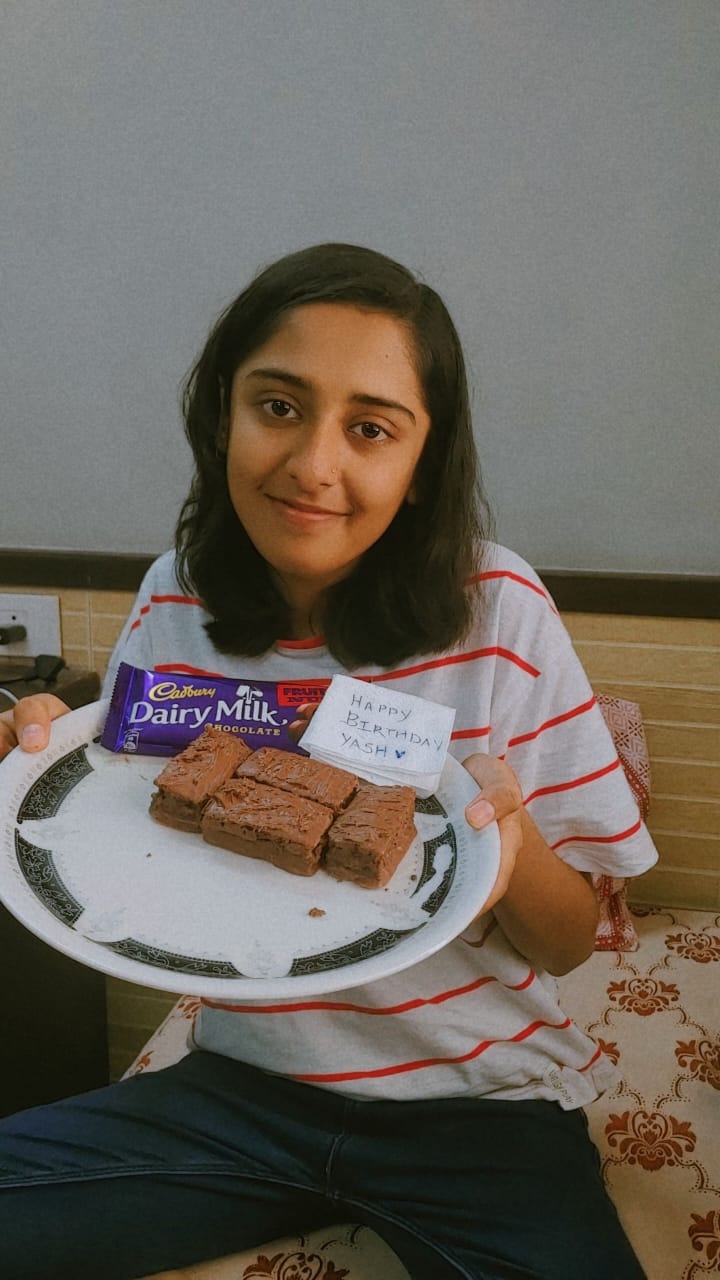 Cadbury
Dairy Milk
CHOCOLATE
HAPPY
BIRTHDAY
YASH